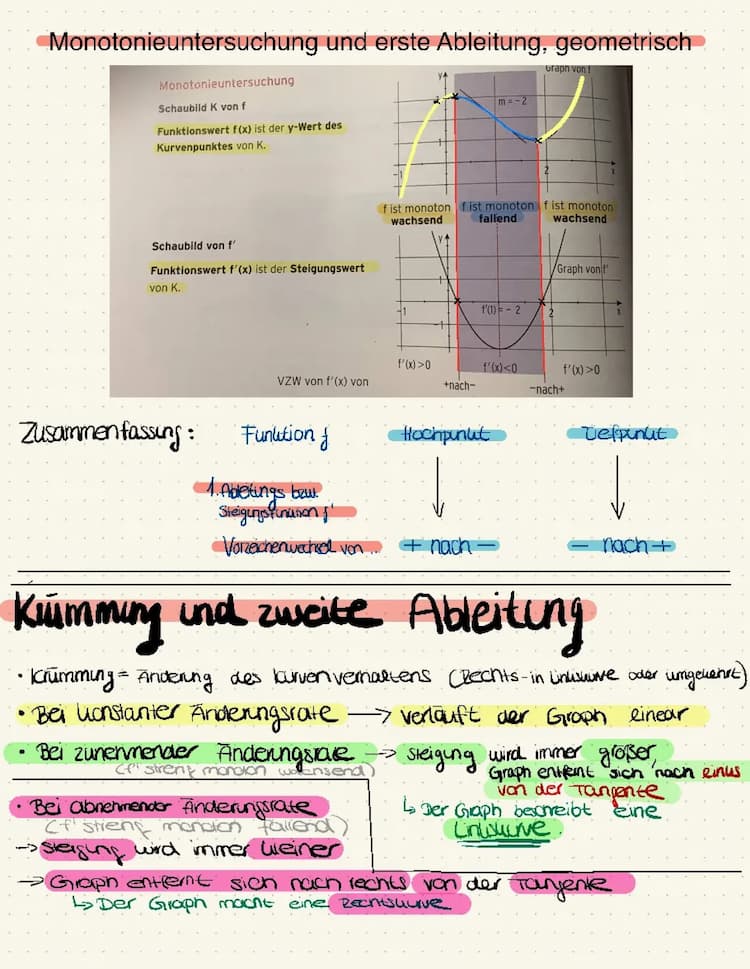 Monotonieuntersuchung und erste Ableitung, geometrisch
Monotonieuntersuchung
Schaubild K von f
Funktionswert f(x) ist der y-Wert des
Kurvenpunktes von K.
y
Graph von f
m = -2
1
-1
2
x
f ist monoton wachsend
f ist monoton fallend
f ist monoton wachsend
Schaubild von f'
Funktionswert f'(x) ist der Steigungswert
von K.
y
Graph von f'
1
-1
f'(1) = -2
2
x
-1
f'(x)>0
f'(x)<0
f'(x)>0
VZW von f'(x) von
+nach-
-nach+
Zusammenfassung: Funktion f Hochpunkt Tiefpunkt
1. Ableitungs bzw.
Steigungsfunktion f'
Vorzeichenwechsel von ... + nach - - nach +
Krümmung und zweite Ableitung
• Krümmung = Änderung des Kurvenverhaltens (Rechts- in Linkskurve oder umgekehrt)
• Bei konstanter Änderungsrate → verläuft der Graph linear
• Bei zunehmender Änderungsrate → Steigung wird immer größer,
(f' streng monoton wachsend)
Graph entfernt sich nach links
von der Tangente
↳ Der Graph beschreibt eine
Linkskurve
• Bei abnehmender Änderungsrate
(f' streng monoton fallend)
→ Steigung wird immer kleiner
→ Graph entfernt sich nach rechts von der Tangente
↳ Der Graph macht eine Rechtskurve